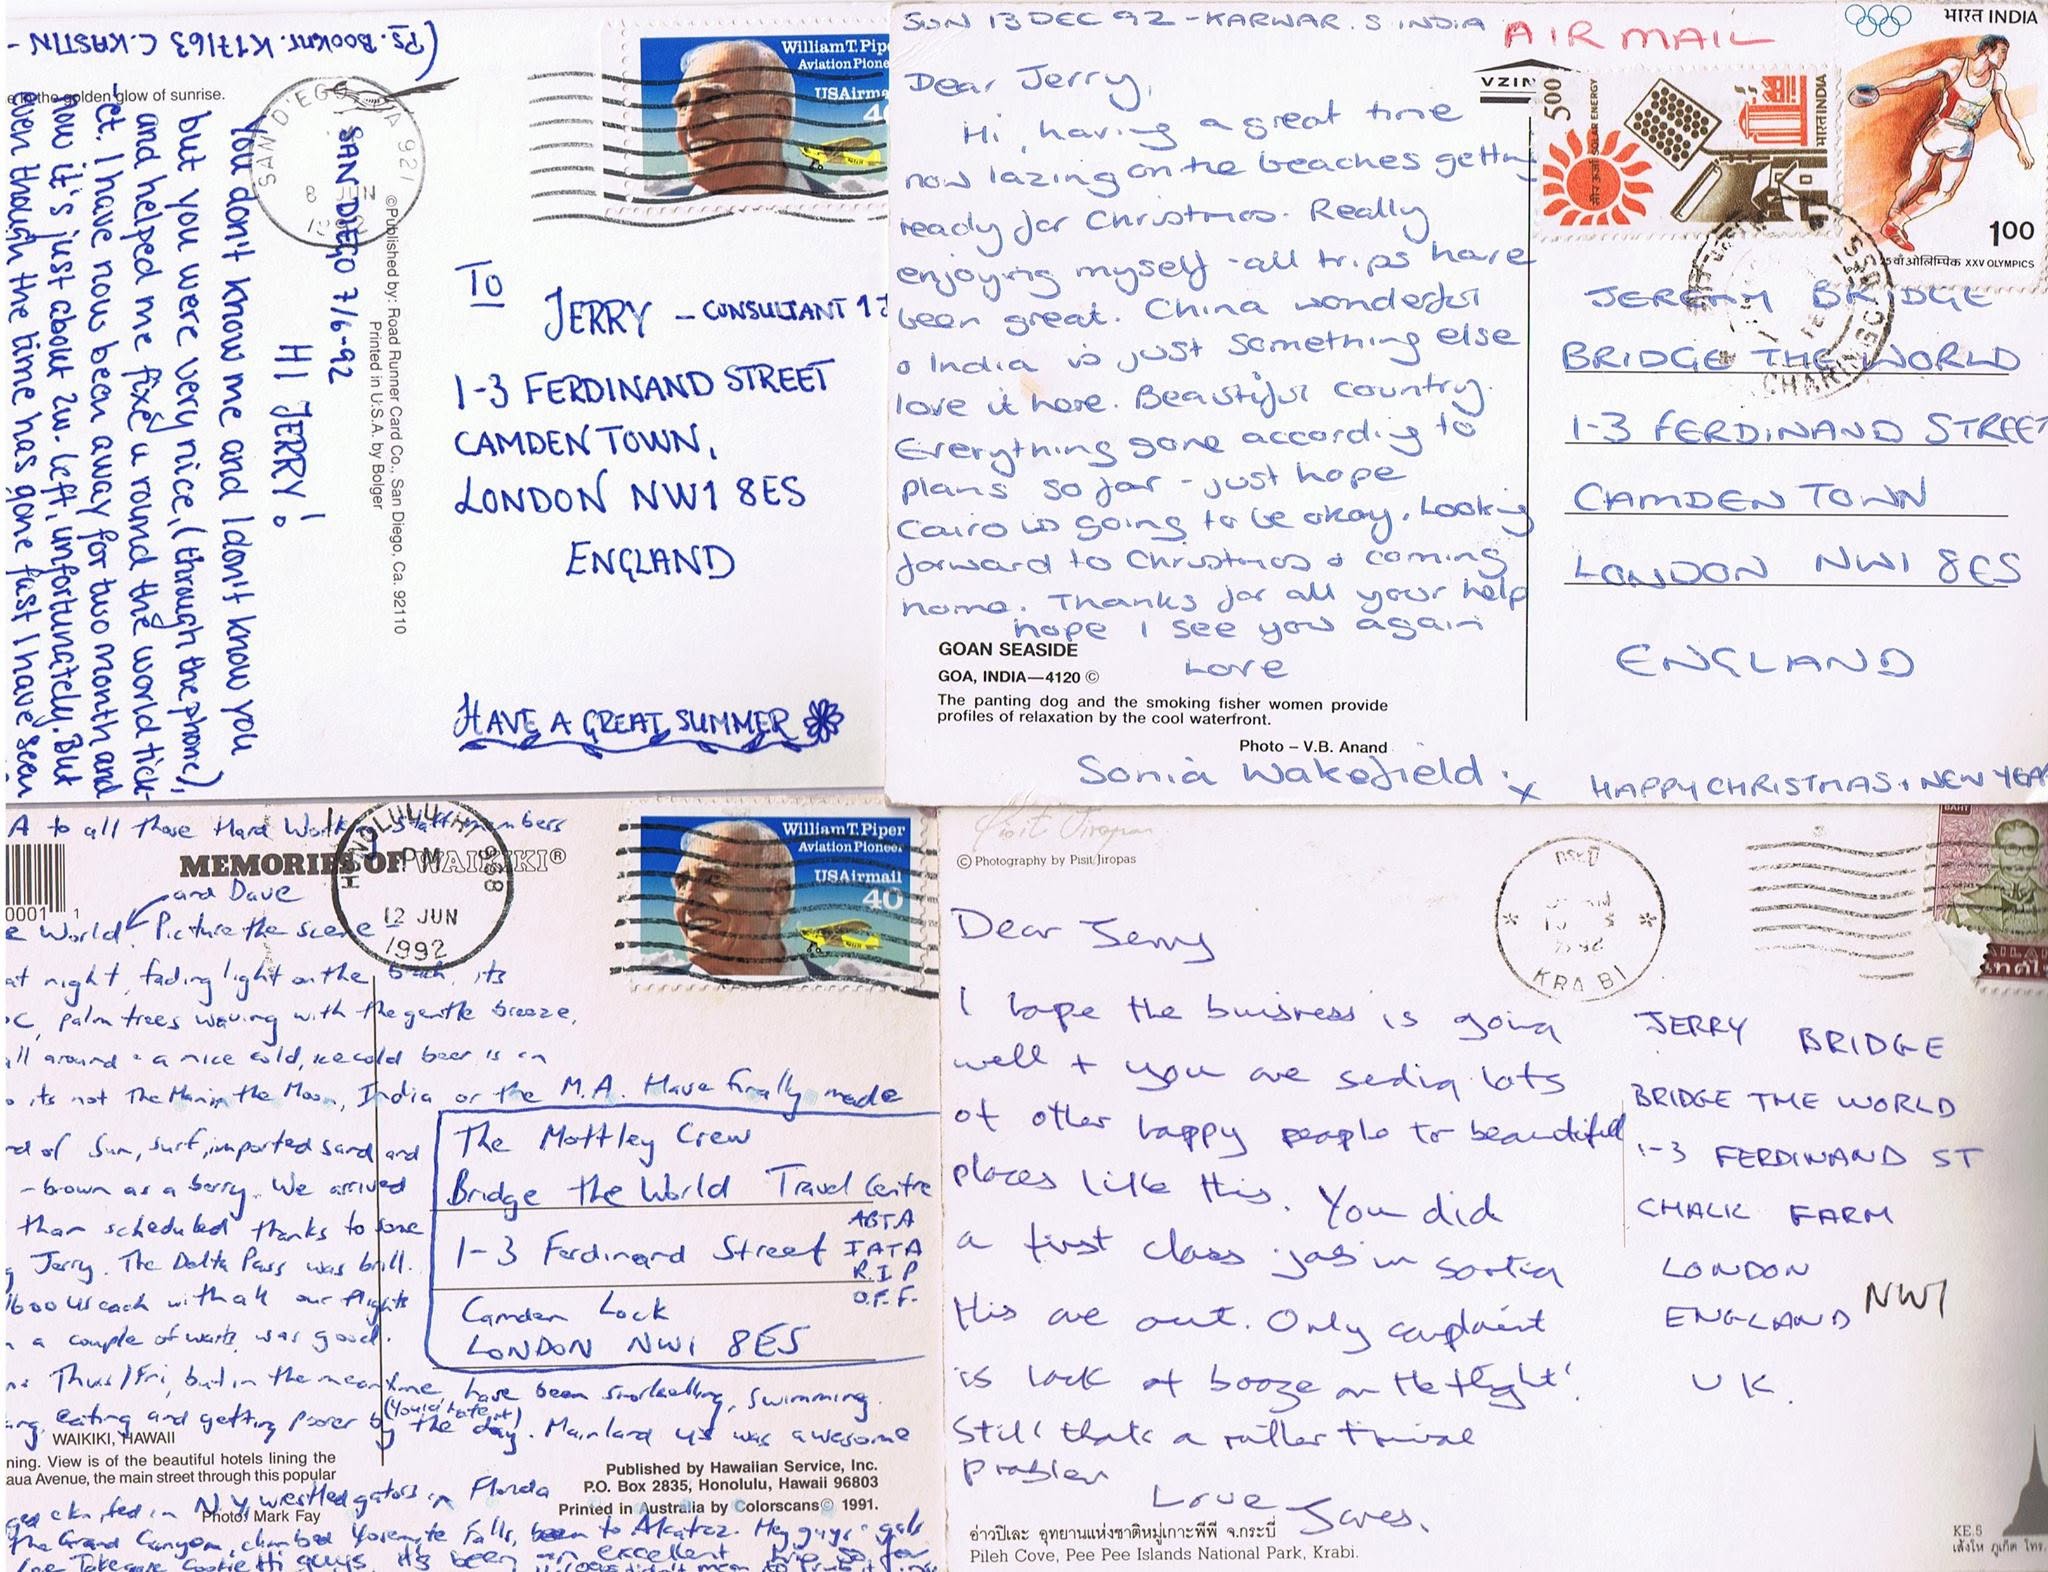 (Ps. Booknr. K17/63 C. KASTIN -
e to the golden glow of sunrise.
SAN DIEGO 7/6-92
HI JERRY!
You don't know me and I don't know you
but you were very nice, (through the phone),
and helped me fixe a round the world tick-
et. I have now been away for two month and
now it's just about 2w. left, unfortunately. But
even though the time has gone fast I have seen
©Published by: Road Runner Card Co., San Diego, Ca. 92110
Printed in U.S.A. by Bolger
SAN DIEGO
921
William T. Pipe
Aviation Pione
USAirma
4
To
JERRY - CONSULTANT 17
1-3 FERDINAND STREET
CAMDEN TOWN,
LONDON NW1 8ES
ENGLAND
HAVE A GREAT SUMMER
SUN 13 DEC 92 - KARWAR. S INDIA
AIR MAIL
Dear Jerry,
Hi, having a great time
now lazing on the beaches getting
ready for Christmas. Really
enjoying myself - all trips have
been great. China wonderful
& India is just something else
love it here. Beautiful country.
Everything gone according to
plans so far - just hope
Cairo is going to be okay. Looking
forward to Christmas & coming
home. Thanks for all your help
hope I see you again
Love
Sonia Wakefield x
GOAN SEASIDE
GOA, INDIA—4120 ©
The panting dog and the smoking fisher women provide
profiles of relaxation by the cool waterfront.
Photo – V.B. Anand
VZIN
500
सौर ऊर्जा SOLAR ENERGY
भारत INDIA
भारत INDIA
1.00
25वां ओलिम्पिक XXV OLYMPICS
CHARING
JEREMY BRIDGE
BRIDGE THE WORLD
1-3 FERDINAND STREET
CAMDEN TOWN
LONDON NW1 8ES
ENGLAND
HAPPY CHRISTMAS + NEW YEAR
A to all those Hard Working Staff members
MEMORIES OF WAIKIKI®
and Dave
0001 1
e World. Picture the scene
at night, fading light on the beach, its
°C, palm trees waving with the gentle breeze,
all around - a nice cold, ice cold beer is in
o its not The Man in the Moon, India or the M.A. Have finally made
nd of Sun, surf, imported sand and
- brown as a berry. We arrived
than scheduled thanks to some
g Jerry. The Delta Pass was brill.
1600 us each with all our flights
n a couple of was good.
Thurs/Fri, but in the meantime, have been snorkelling, swimming
(You'd hate it)
ing, eating and getting poorer by the day. Mainland US was awesome
WAIKIKI, HAWAII
ning. View is of the beautiful hotels lining the
aua Avenue, the main street through this popular
Photo: Mark Fay
in N.Y, wrestled gators in Florida
The Grand Canyon, climbed Yosemite Falls, been to Alcatraz. Hey guys + gals
guys, it's been an excellent trip so far
HONOLULU HI
PM
12 JUN
1992
968
William T. Piper
Aviation Pioneer
USAirmail
40
The Mottley Crew
Bridge the World Travel Centre
1-3 Ferdinand Street
ABTA
IATA
R.I.P
O.F.F.
Camden Lock
LONDON NW1 8ES
Published by Hawaiian Service, Inc.
P.O. Box 2835, Honolulu, Hawaii 96803
Printed in Australia by Colorscans© 1991.
© Photography by Pisit Jiropas
Dear Jerry
I hope the buisness is going
well + you are seding lots
of other happy people to beautifull
places like this. You did
a first class job in sorting
this one out. Only complaint
is lack of booze on the flight!
Still thats a rather trivial
problem
Love
อ่าวปิเละ อุทยานแห่งชาติหมู่เกาะพีพี จ.กระบี่
Pileh Cove, Pee Pee Islands National Park, Krabi.
กระบี่
KRABI
BAHT
JERRY BRIDGE
BRIDGE THE WORLD
1-3 FERDINAND ST
CHALK FARM
LONDON
ENGLAND NW1
UK.
KE.5